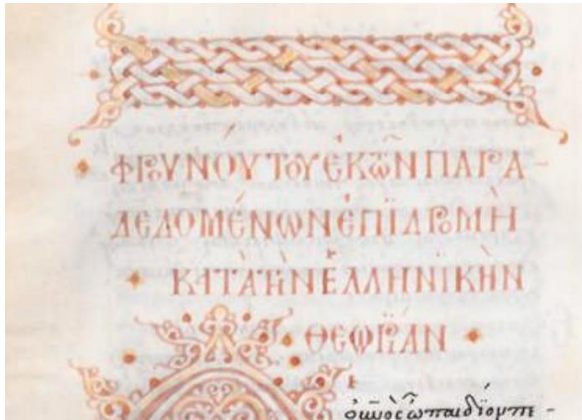 ΦΡΟΥΝΟΎΤΟΥ ἐΚ ΤῶΝ ΠΑΡΑ-
ΔΕΔΟΜΈΝΩΝ ἐΠΙΔΡΟΜῊ
ΚΑΤΑ ΤῊΝ ἑΛΛΗΝΙΚῊΝ
ΘΕΩΡΊΑΝ
οὐνὸς ὦ παιδίον πε-